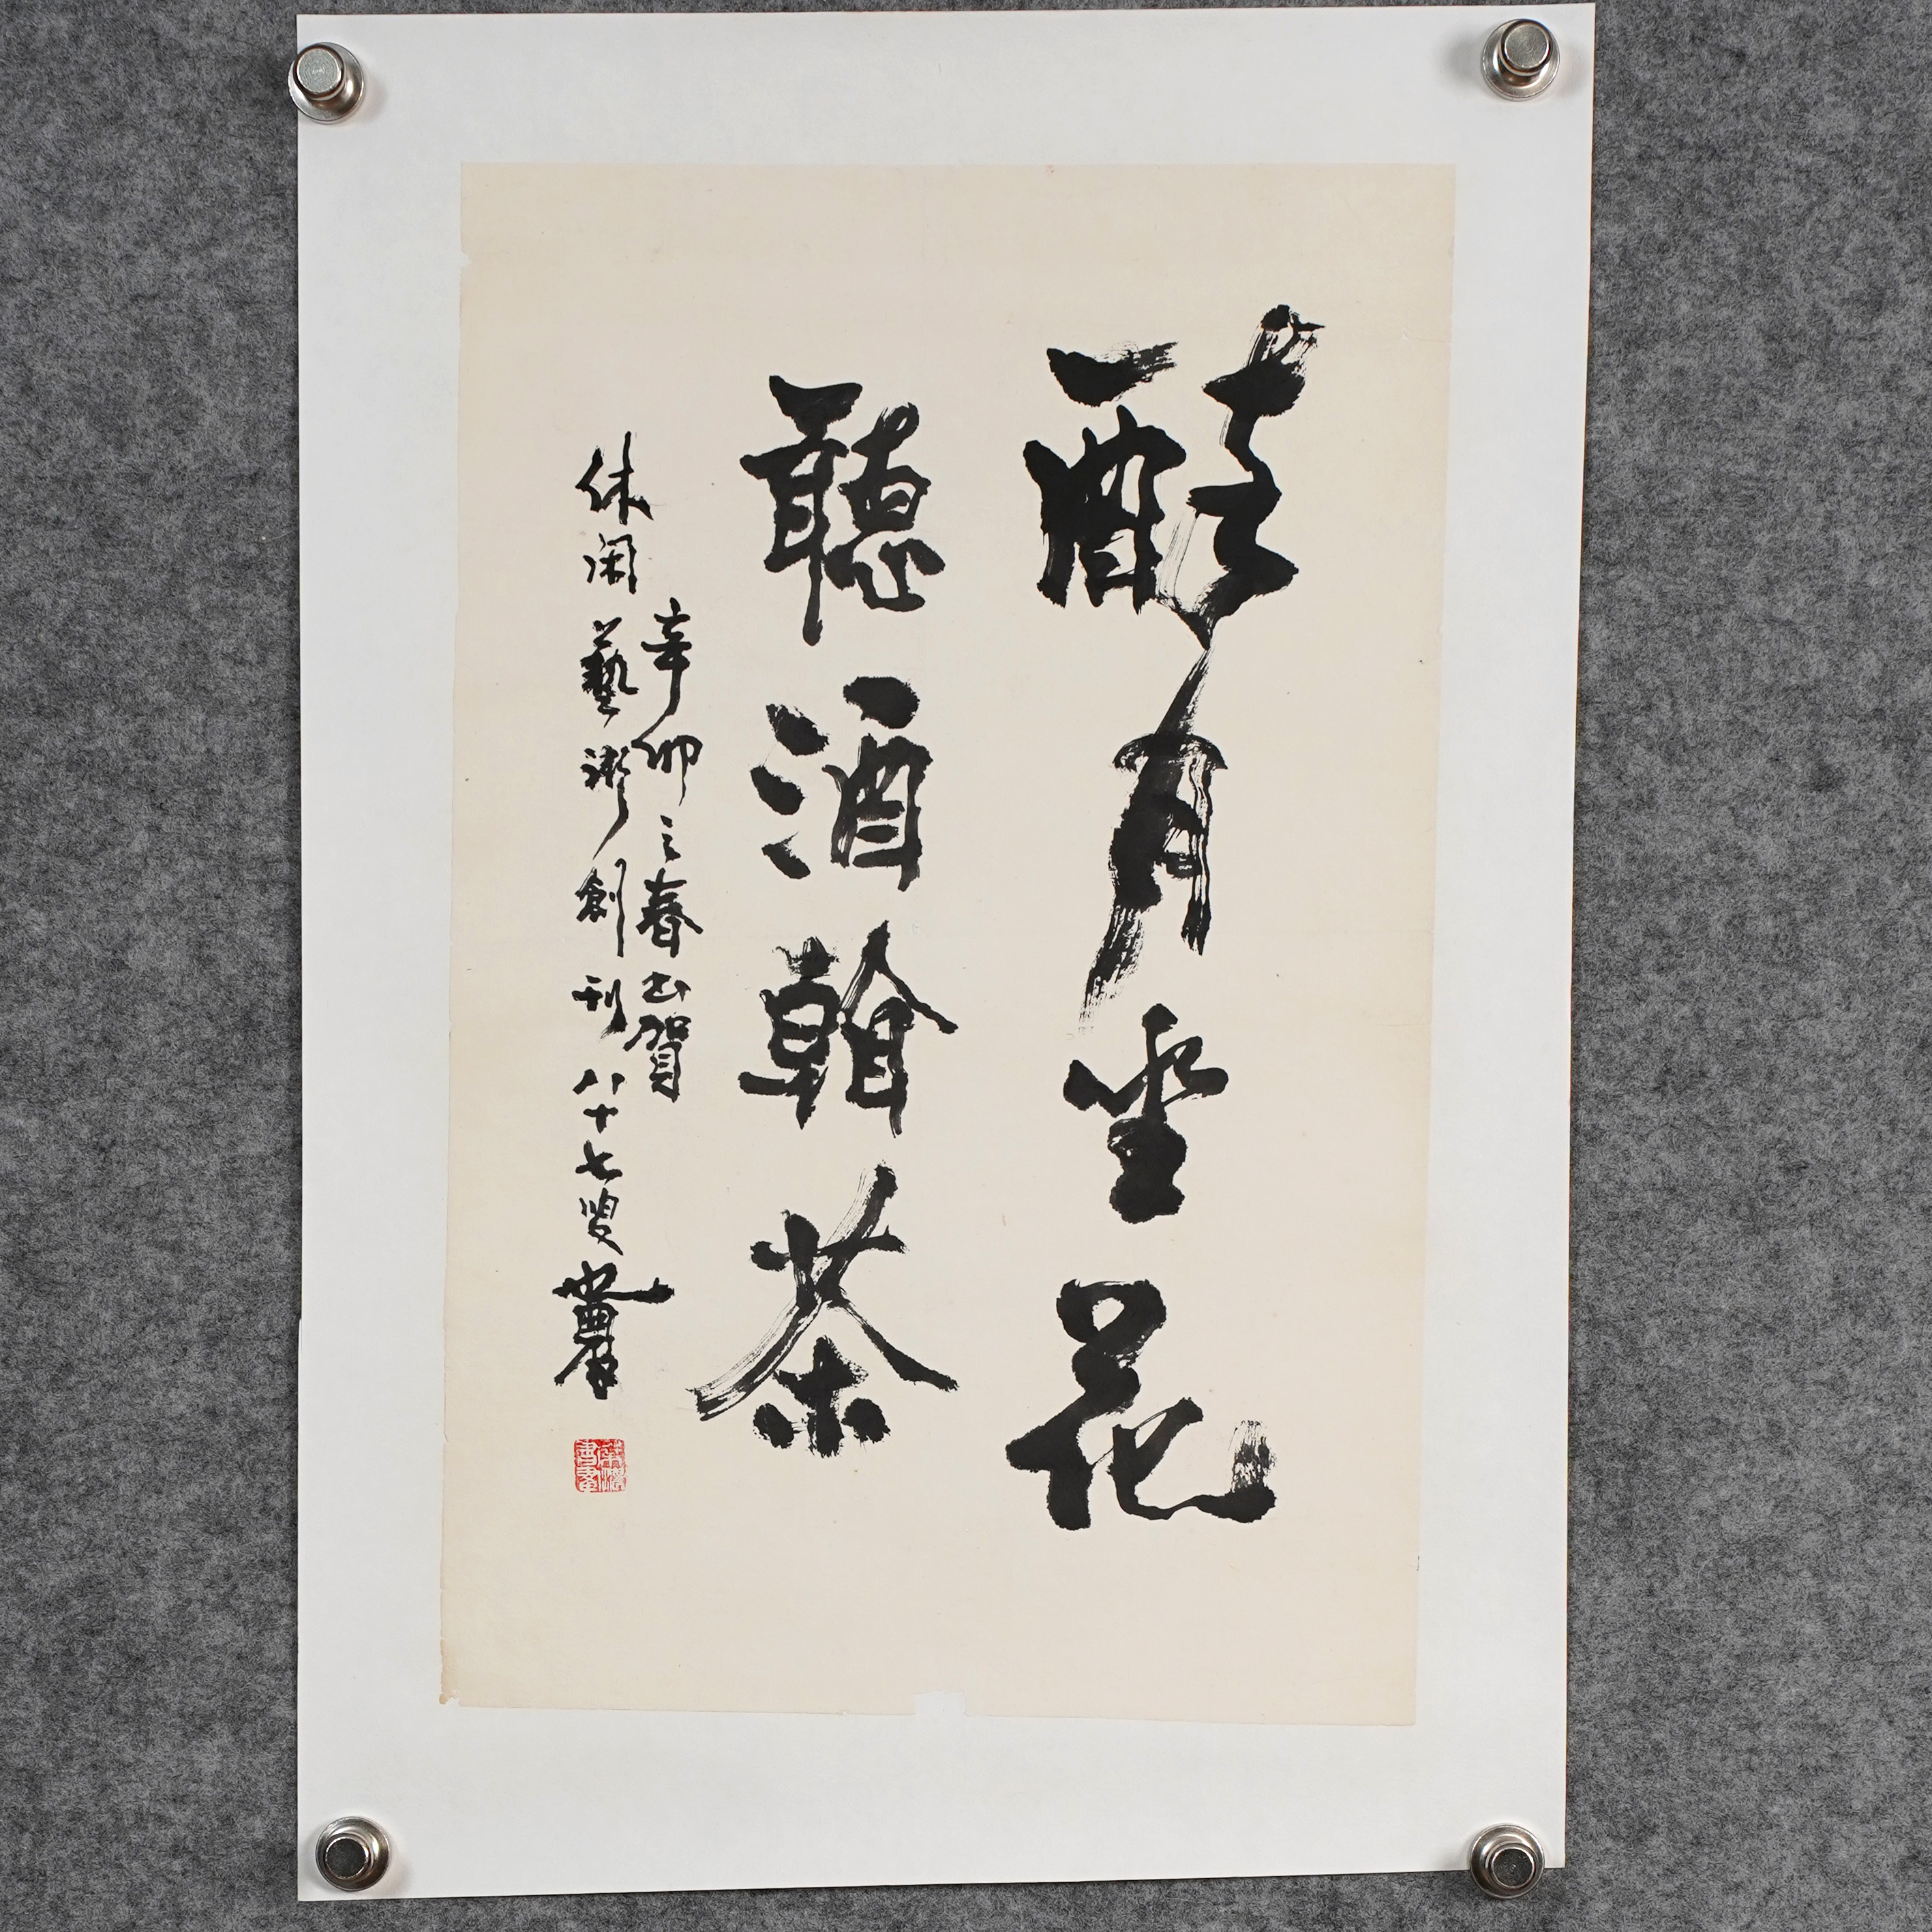 醉月坐花
聽酒翰茶
辛卯之春书賀
休闲藝術創刊八十七叟